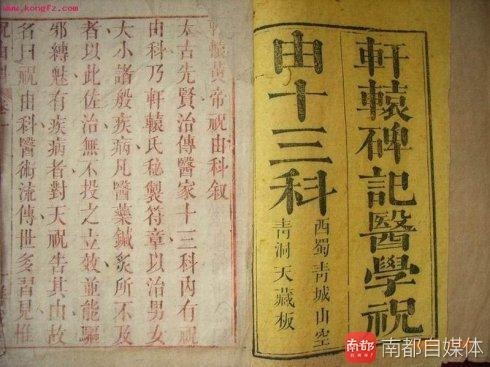 www.kongfz.com
軒轅碑記醫學祝
由十三科
西蜀青城山空
青洞天藏板
軒轅黃帝祝由科叙
太古先賢治傳醫家十三科內有祝
由科乃軒轅氏秘製符章以治男女
大小諸般疾病凡醫藥鍼灸所不及
者以此佐治無不投之立效並能驅
邪縛魅有疾病者對天祝告其由故
名曰祝由科醫術流傳世多習見惟
南都
南都自媒体